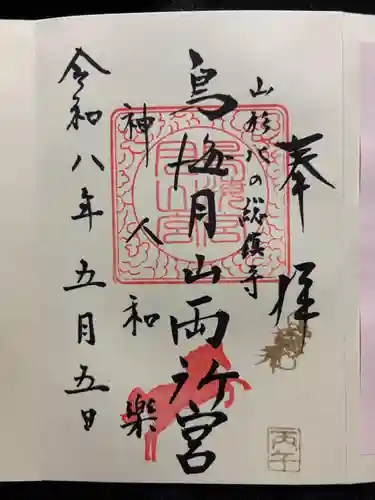 奉拝
山形の総鎮守
鳥海月山両所宮
神人和楽
令和八年五月五日
丙午